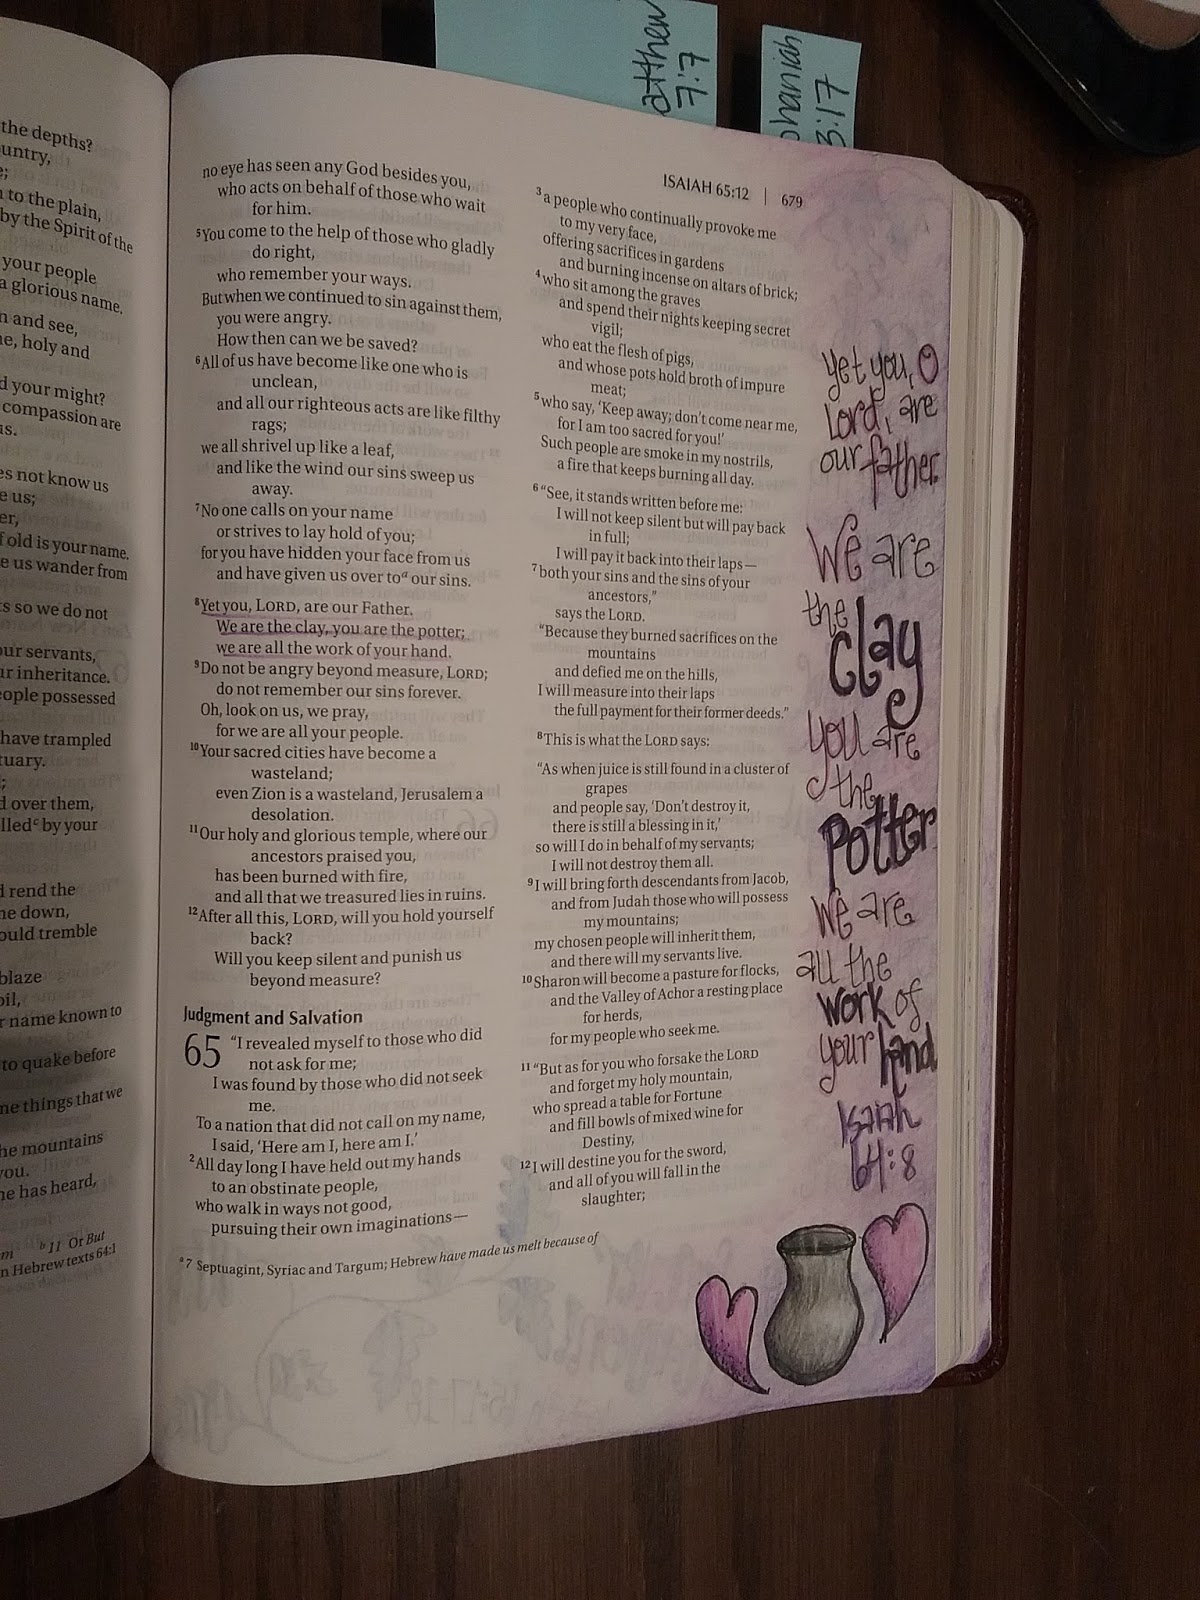 atthew
7:7
haniah
3:17
the depths?
untry,
to the plain,
by the Spirit of the
your people
a glorious name.
n and see,
ne, holy and
d your might?
compassion are
us.
es not know us
e us;
er,
f old is your name.
e us wander from
ts so we do not
our servants,
ur inheritance.
eople possessed
have trampled
tuary.
d over them,
lledᶜ by your
d rend the
ne down,
ould tremble
blaze
oil,
r name known to
to quake before
me things that we
he mountains
you.
ne has heard,
m ᵇ 11 Or But
n Hebrew texts 64:1
ISAIAH 65:12 | 679
no eye has seen any God besides you,
who acts on behalf of those who wait
for him.
⁵You come to the help of those who gladly
do right,
who remember your ways.
But when we continued to sin against them,
you were angry.
How then can we be saved?
⁶All of us have become like one who is
unclean,
and all our righteous acts are like filthy
rags;
we all shrivel up like a leaf,
and like the wind our sins sweep us
away.
⁷No one calls on your name
or strives to lay hold of you;
for you have hidden your face from us
and have given us over toᵃ our sins.
⁸Yet you, LORD, are our Father.
We are the clay, you are the potter;
we are all the work of your hand.
⁹Do not be angry beyond measure, LORD;
do not remember our sins forever.
Oh, look on us, we pray,
for we are all your people.
¹⁰Your sacred cities have become a
wasteland;
even Zion is a wasteland, Jerusalem a
desolation.
¹¹Our holy and glorious temple, where our
ancestors praised you,
has been burned with fire,
and all that we treasured lies in ruins.
¹²After all this, LORD, will you hold yourself
back?
Will you keep silent and punish us
beyond measure?
Judgment and Salvation
65 “I revealed myself to those who did
not ask for me;
I was found by those who did not seek
me.
To a nation that did not call on my name,
I said, ‘Here am I, here am I.’
²All day long I have held out my hands
to an obstinate people,
who walk in ways not good,
pursuing their own imaginations—
³a people who continually provoke me
to my very face,
offering sacrifices in gardens
and burning incense on altars of brick;
⁴who sit among the graves
and spend their nights keeping secret
vigil;
who eat the flesh of pigs,
and whose pots hold broth of impure
meat;
⁵who say, ‘Keep away; don’t come near me,
for I am too sacred for you!’
Such people are smoke in my nostrils,
a fire that keeps burning all day.
⁶“See, it stands written before me:
I will not keep silent but will pay back
in full;
I will pay it back into their laps—
⁷both your sins and the sins of your
ancestors,”
says the LORD.
“Because they burned sacrifices on the
mountains
and defied me on the hills,
I will measure into their laps
the full payment for their former deeds.”
⁸This is what the LORD says:
“As when juice is still found in a cluster of
grapes
and people say, ‘Don’t destroy it,
there is still a blessing in it,’
so will I do in behalf of my servants;
I will not destroy them all.
⁹I will bring forth descendants from Jacob,
and from Judah those who will possess
my mountains;
my chosen people will inherit them,
and there will my servants live.
¹⁰Sharon will become a pasture for flocks,
and the Valley of Achor a resting place
for herds,
for my people who seek me.
¹¹“But as for you who forsake the LORD
and forget my holy mountain,
who spread a table for Fortune
and fill bowls of mixed wine for
Destiny,
¹²I will destine you for the sword,
and all of you will fall in the
slaughter;
ᵃ 7 Septuagint, Syriac and Targum; Hebrew have made us melt because of
Yet you, O
Lord, are
our father.
We are
the
clay
you are
the
Potter
We are
all the
work of
your hand
Isaiah
64:8